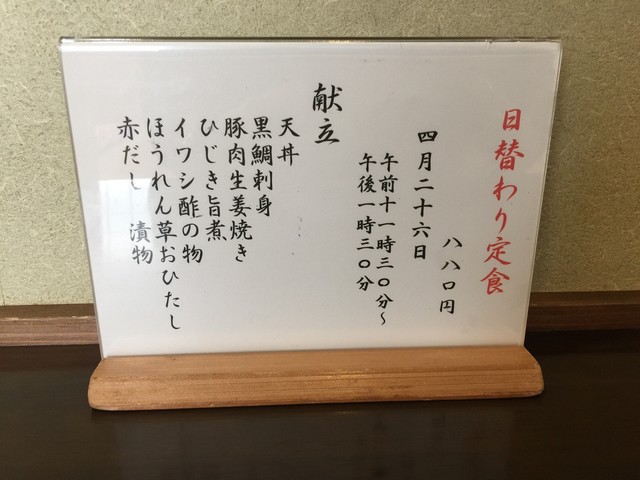 日替わり定食
八八〇円
四月二十六日
午前十一時三〇分〜
午後一時三〇分
献立
天丼
黒鯛刺身
豚肉生姜焼き
ひじき旨煮
イワシ酢の物
ほうれん草おひたし
赤だし 漬物